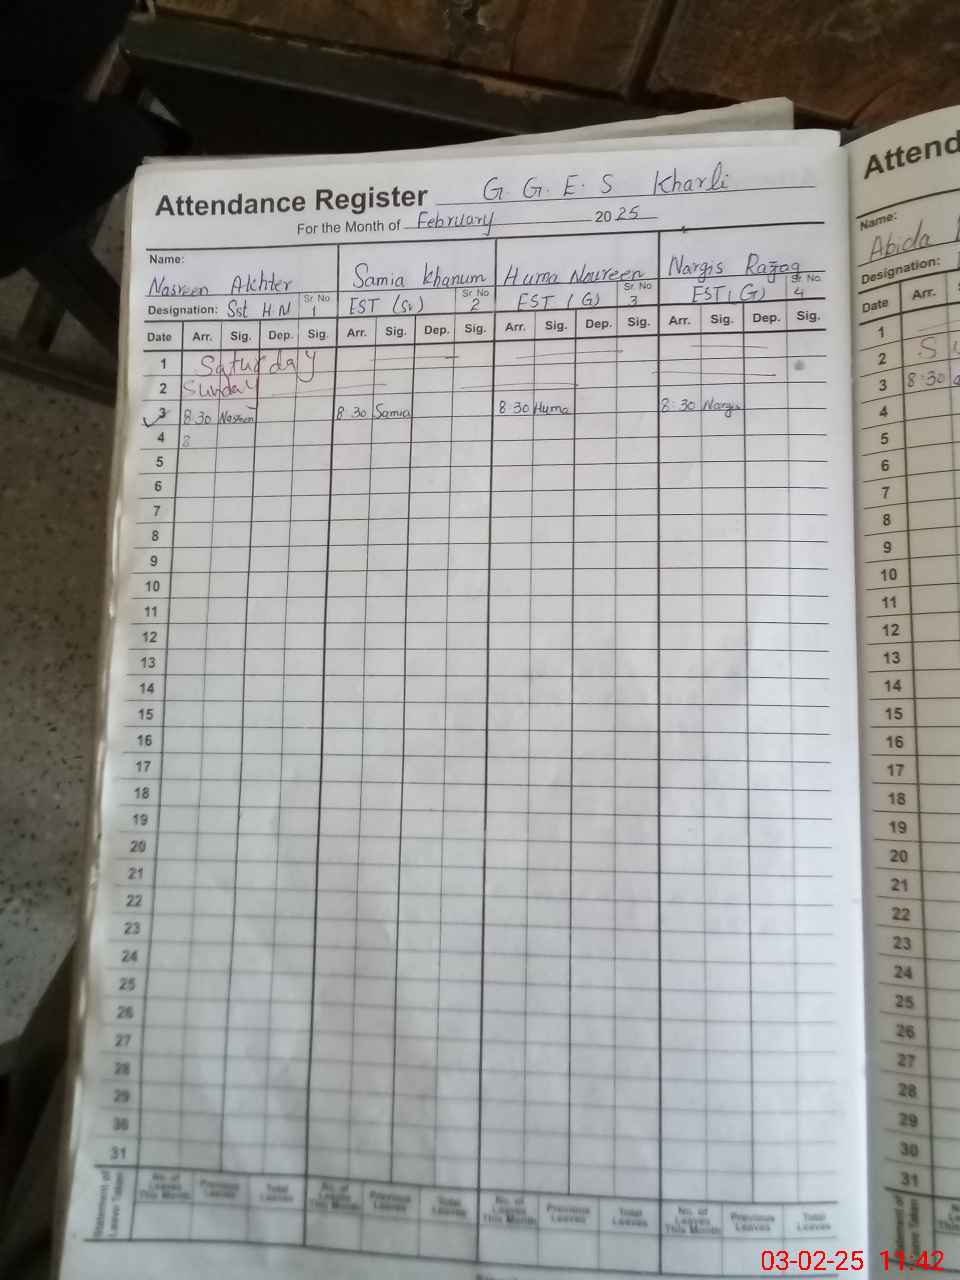 Attendance Register G. G. E. S Kharli
For the Month of February 2025
Name:
Nasreen Akhter Samia Khanum Huma Noureen Nargis Razaq
Designation: Sst H.N Sr. No 1 EST (Sv) Sr. No 2 EST (G) Sr. No 3 EST (G) Sr. No 4
Date Arr. Sig. Dep. Sig. Arr. Sig. Dep. Sig. Arr. Sig. Dep. Sig. Arr. Sig. Dep. Sig.
1 Saturday
2 Sunday
3 8:30 Nasreen 8:30 Samia 8:30 Huma 8:30 Nargis
4 8
5
6
7
8
9
10
11
12
13
14
15
16
17
18
19
20
21
22
23
24
25
26
27
28
29
30
31
Statement of Leave Taken
No. of Leaves This Month Previous Leaves Total Leaves No. of Leaves This Month Previous Leaves Total Leaves No. of Leaves This Month Previous Leaves Total Leaves No. of Leaves This Month Previous Leaves Total Leaves
Attend
Name:
Abida
Designation:
Date Arr.
1
2 S
3 8:30
4
5
6
7
8
9
10
11
12
13
14
15
16
17
18
19
20
21
22
23
24
25
26
27
28
29
30
31
03-02-25 11:42